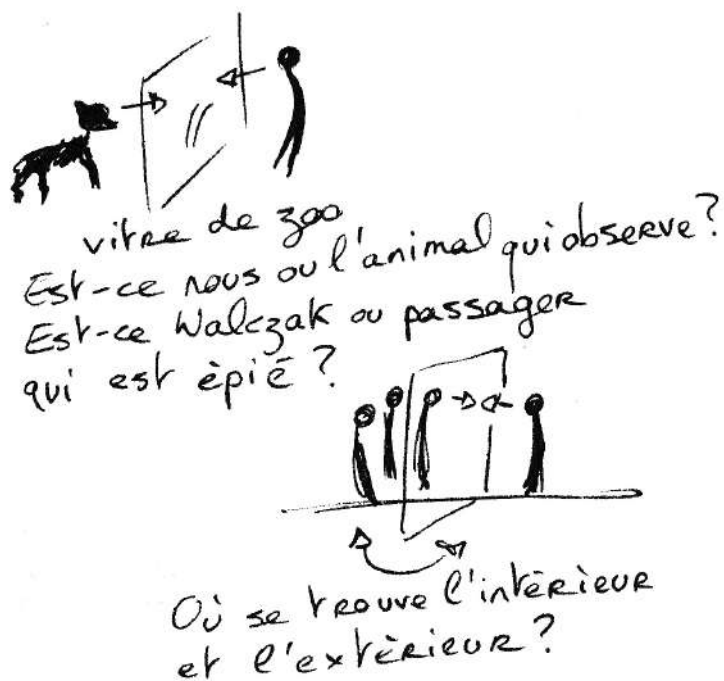 vitre de zoo
Est-ce nous ou l'animal qui observe?
Est-ce Walczak ou passager
qui est épié?
Où se trouve l'intérieur
et l'extérieur?